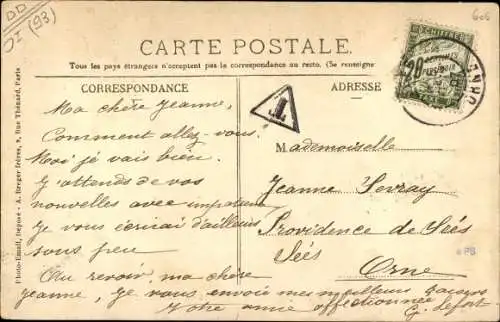 DD
DI (93)
606
CARTE POSTALE
Tous les pays étrangers n'acceptent pas la correspondance au recto. (Se renseigner
CORRESPONDANCE
ADRESSE
CHIFFRE
20
ORNE
T
Ma chère Jeanne,
Comment allez-vous.
Moi je vais bien.
J'attends de vos
nouvelles avec impatience
Je vous écrirai d'ailleurs
sous peu
Au revoir, ma chère
Jeanne, Je vous envoie mes meilleurs baisers
Votre amie affectionnée
G. Lefort
Mademoiselle
Jeanne Sevray
Providence de Séés
Séés
Orne
PB
Photo-Email, Déposé - A. Breger frères, 9, Rue Thénard, Paris